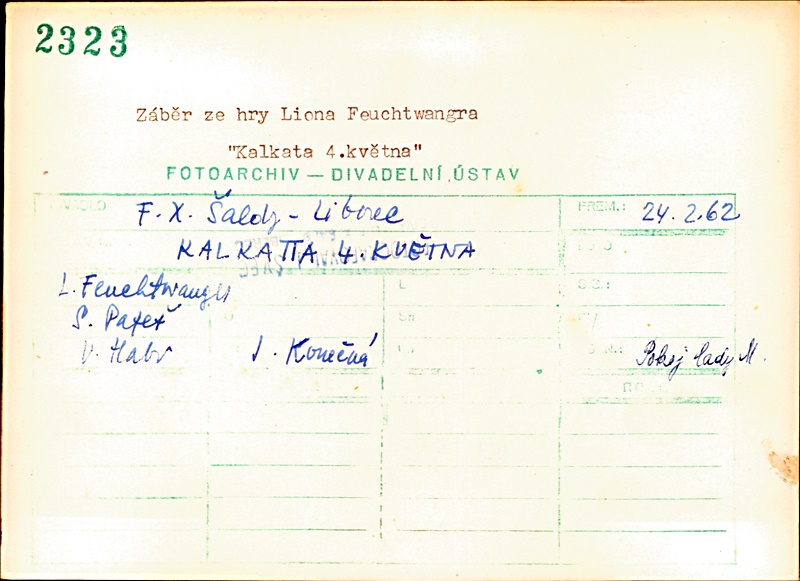 2323
Záběr ze hry Liona Feuchtwangra
"Kalkata 4.května"
FOTOARCHIV — DIVADELNÍ ÚSTAV
F. X. Šaldy - Liberec PREM.: 24. 2. 62
KALKATTA 4. KVĚTNA
L. Feuchtwanger
V. Habr J. Konečná Pokoj lady M.